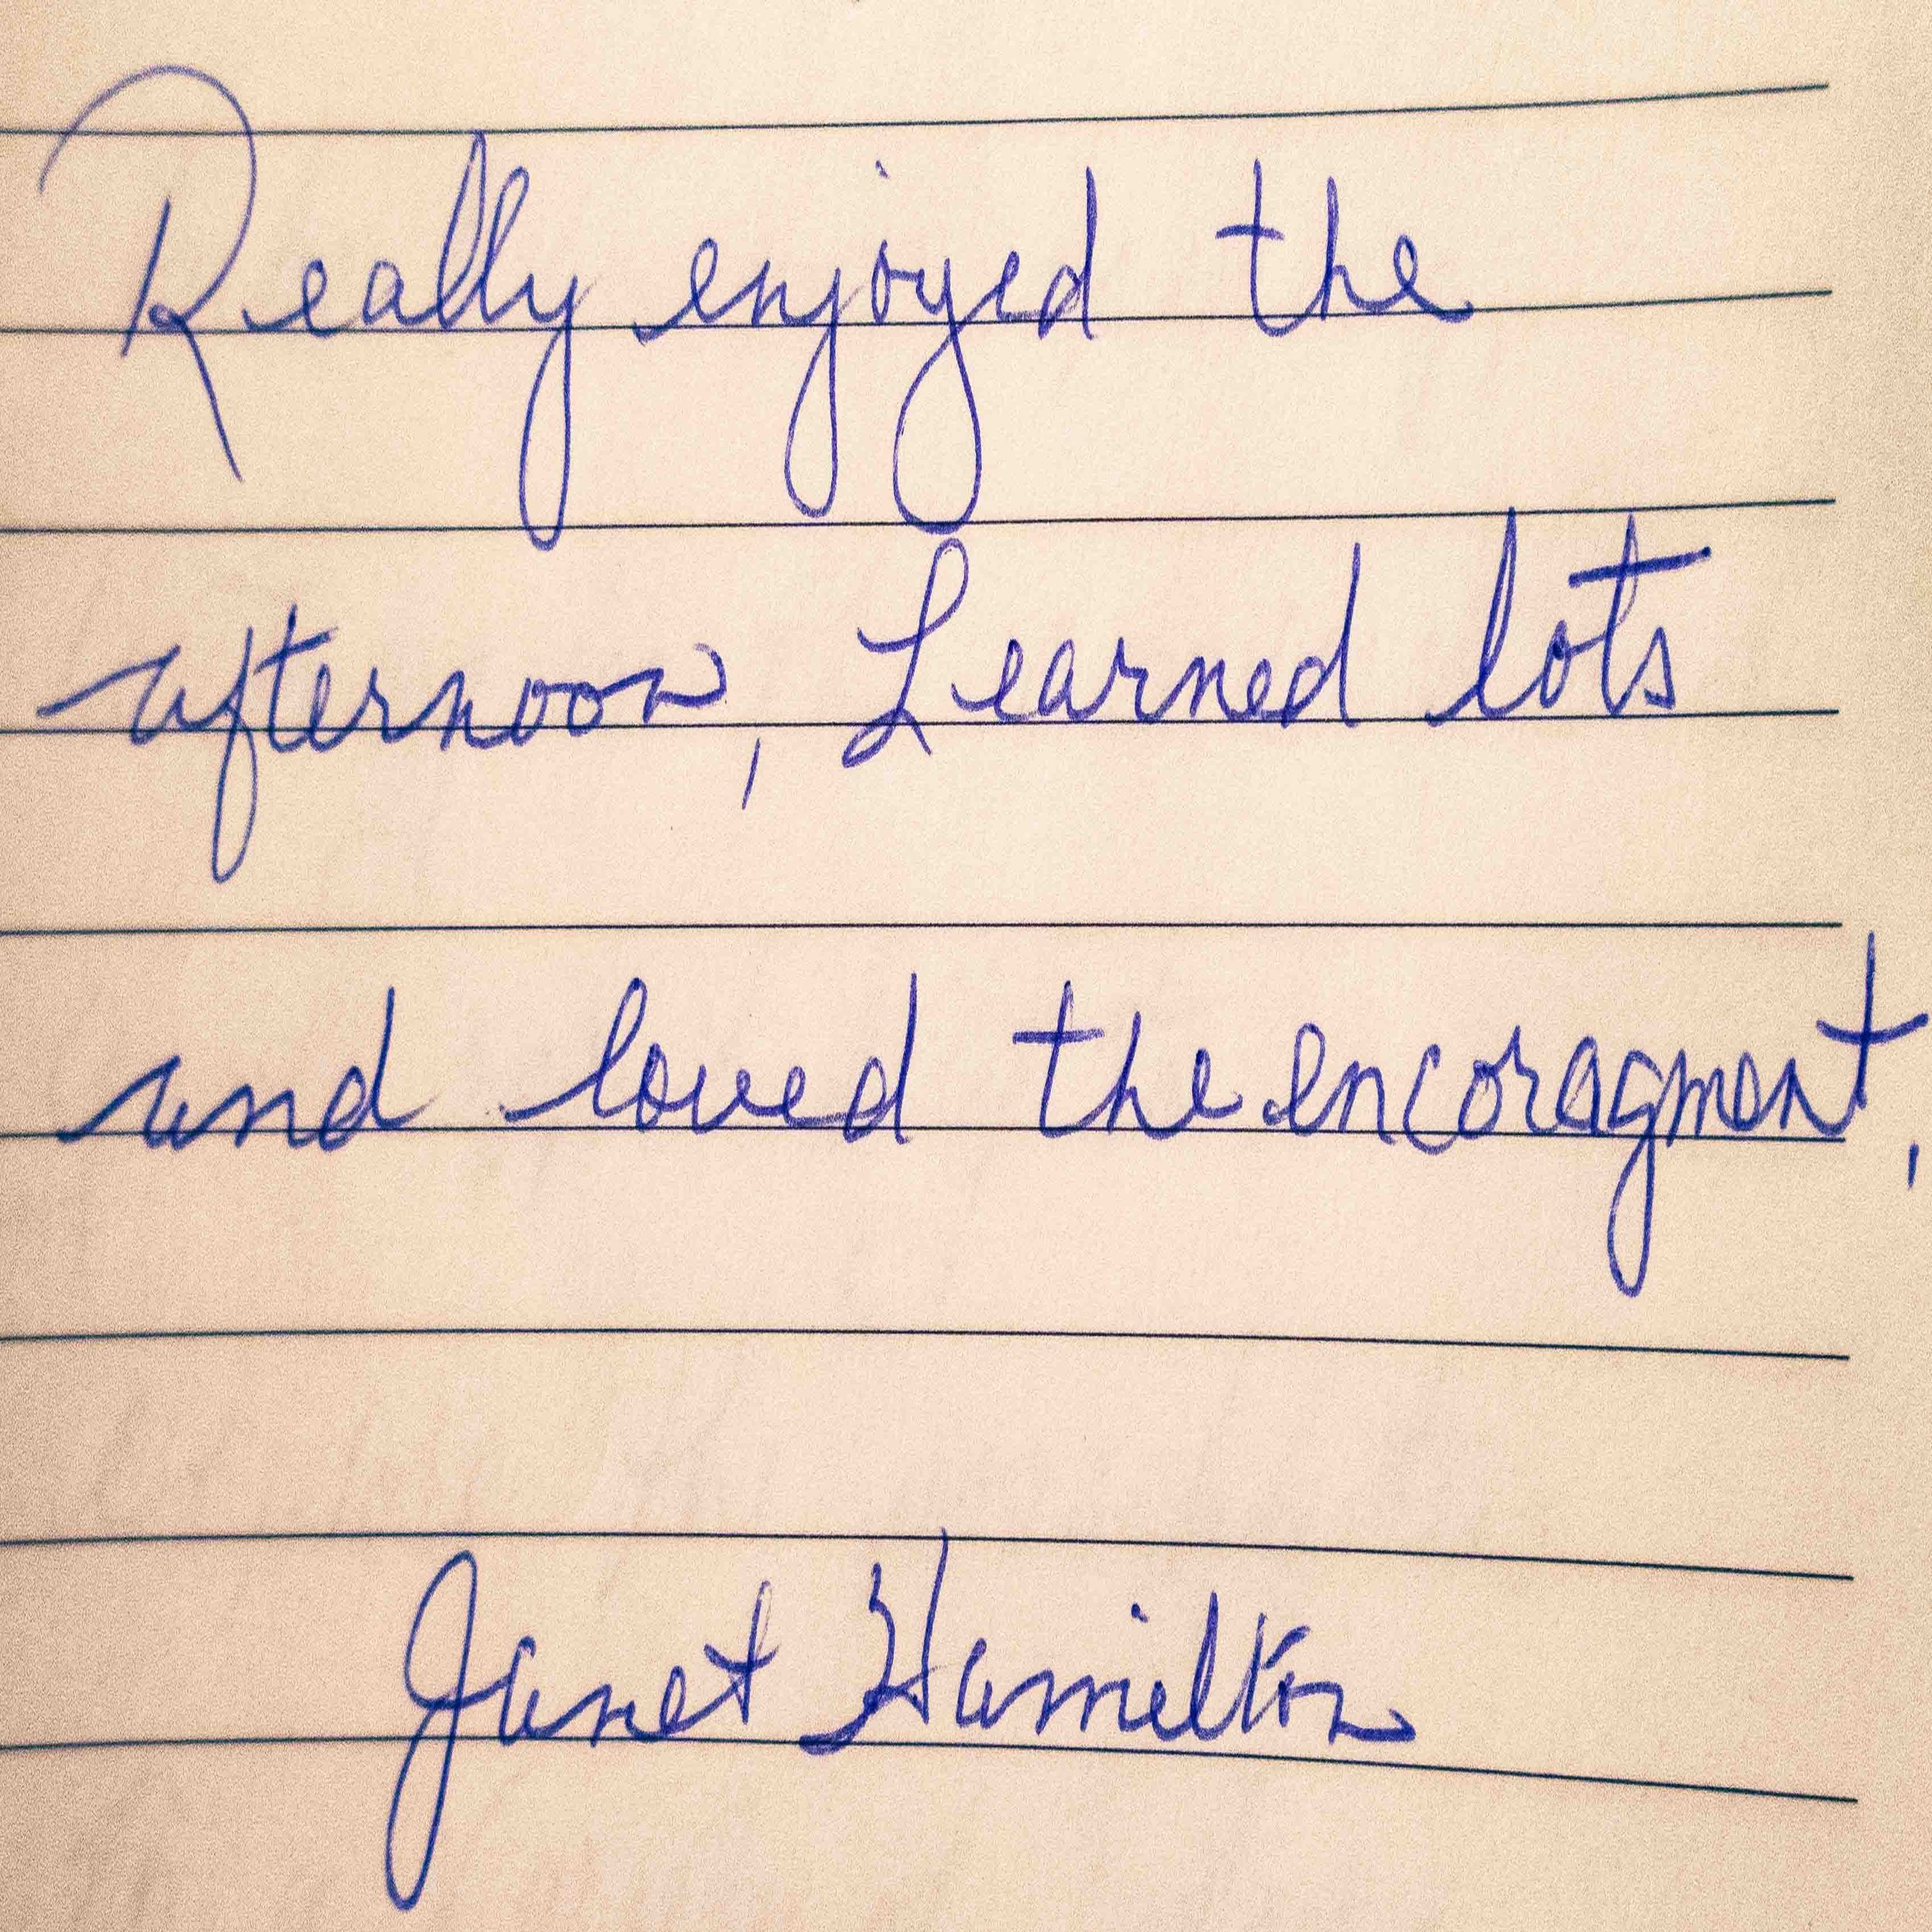 Really enjoyed the
afternoon, Learned lots
and loved the encoragment,
Janet Hamilton